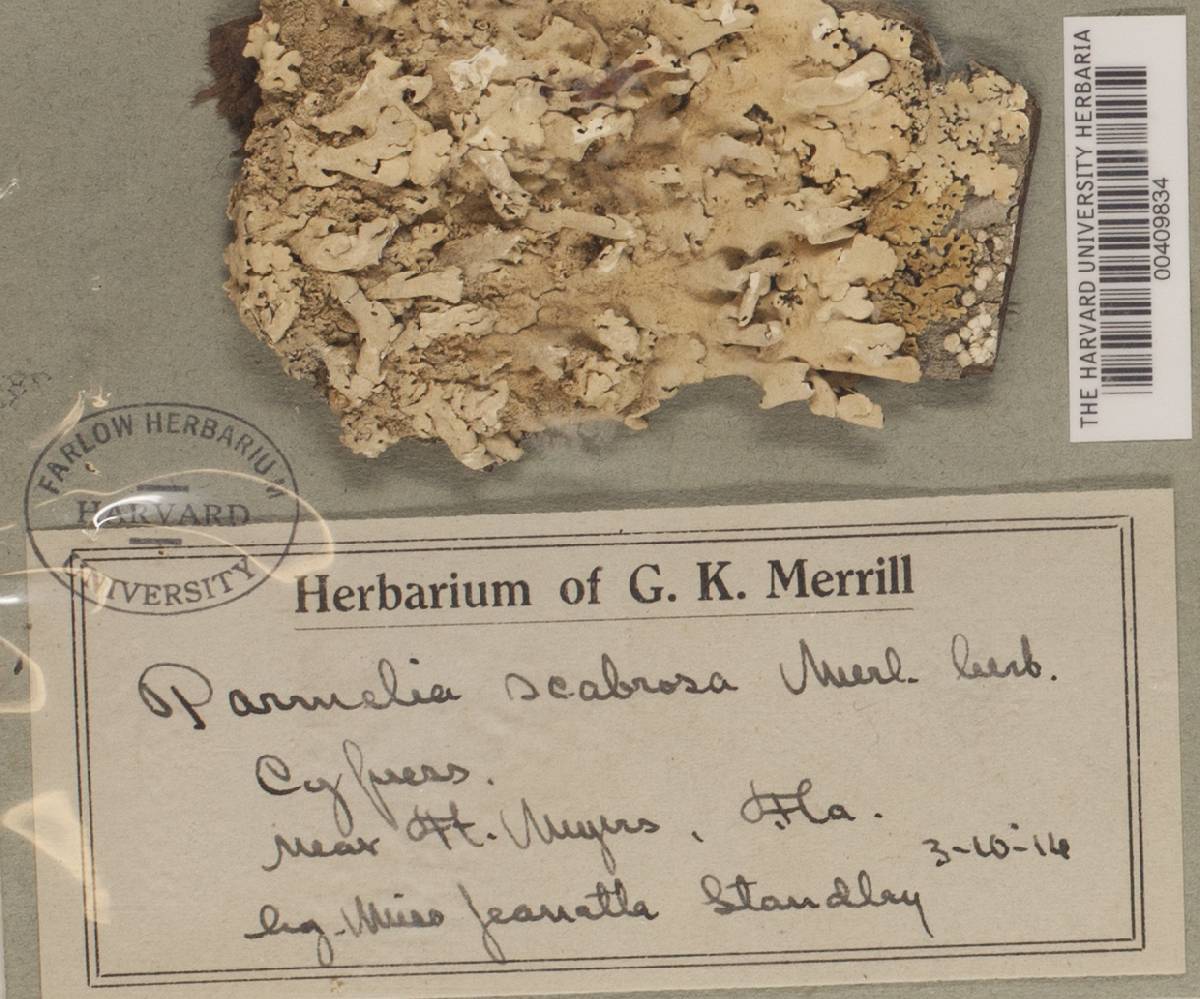 THE HARVARD UNIVERSITY HERBARIA
00409834
FARLOW HERBARIUM
HARVARD
UNIVERSITY
Herbarium of G. K. Merrill
Parmelia scabrosa Merl. herb.
Cypress.
near Ft. Myers, Fla.
3-10-14
leg. Miss Jeanatta Standley